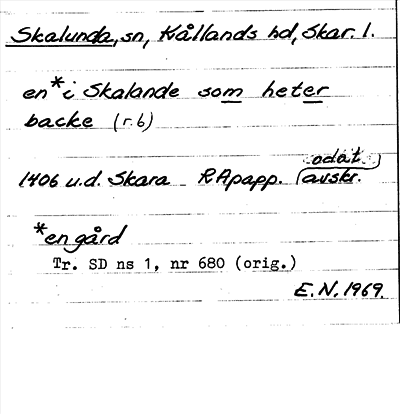 Skalunda, sn, Kållands hd, Skar. l.
en* i Skalande som heter
backe (r.6)
odat.
1406 u.d. Skara RApapp. (avskr.)
*en gård
Tr. SD ns 1, nr 680 (orig.)
E.N. 1969.